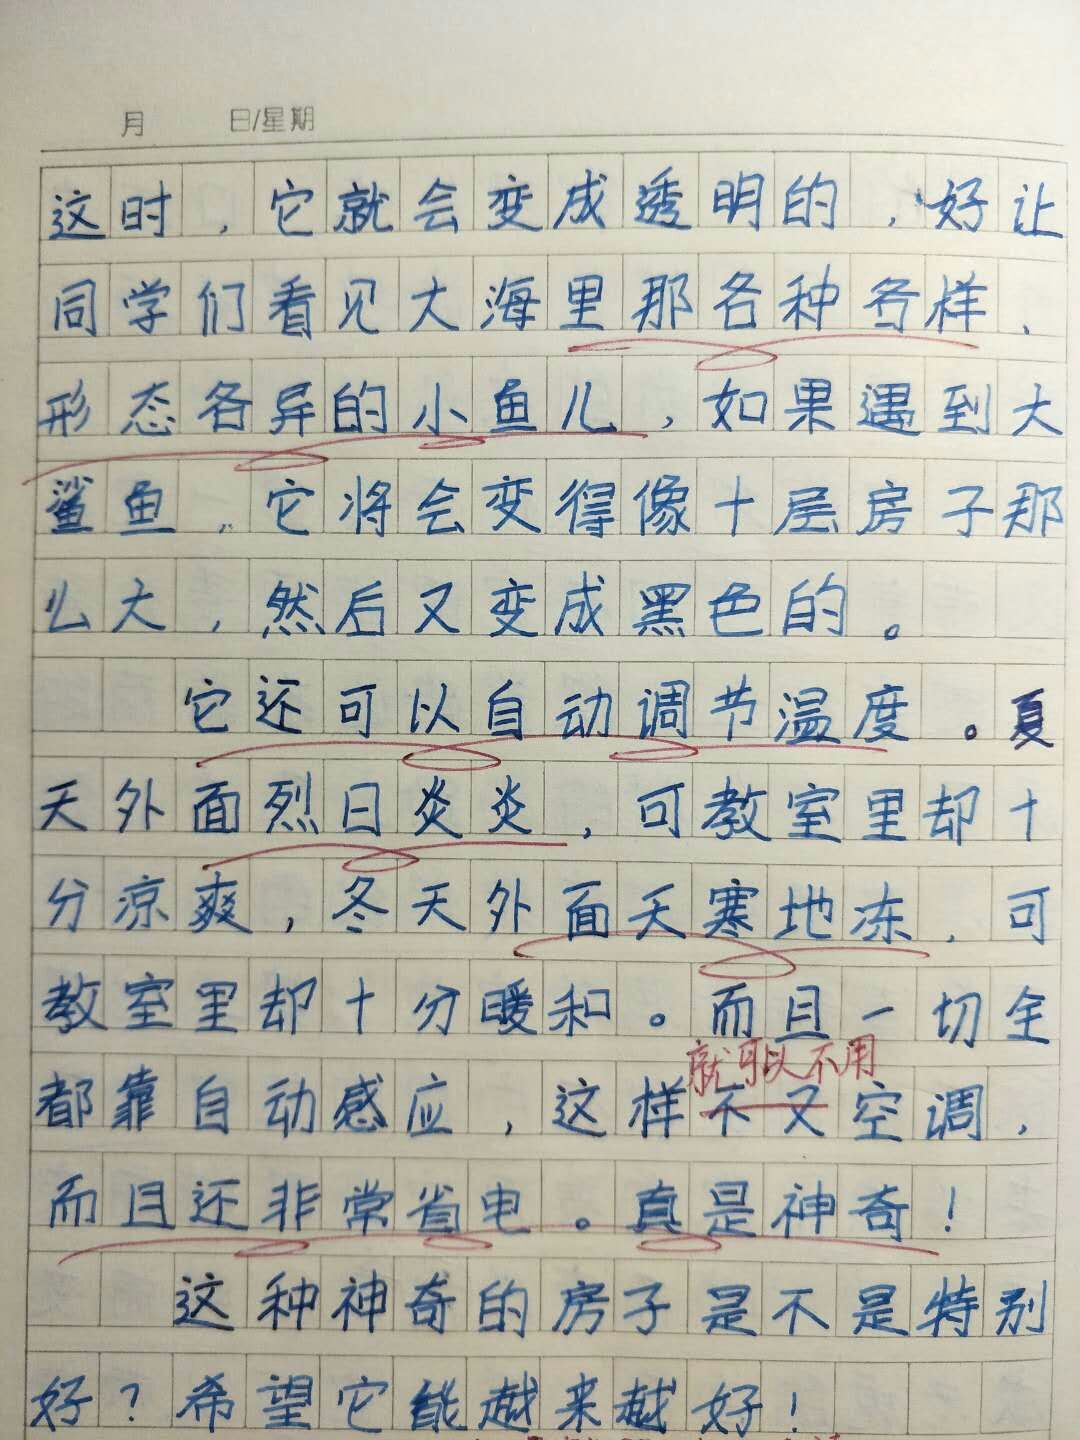 月 日/星期
这时，它就会变成透明的，好让
同学们看见大海里那各种各样、
形态各异的小鱼儿，如果遇到大
鲨鱼，它将会变得像十层房子那
么大，然后又变成黑色的。
它还可以自动调节温度。夏
天外面烈日炎炎，可教室里却十
分凉爽，冬天外面天寒地冻，可
教室里却十分暖和。而且一切全
就可以不用
都靠自动感应，这样不又空调，
而且还非常省电。真是神奇！
这种神奇的房子是不是特别
好？希望它能越来越好！